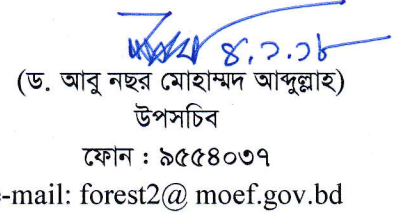 ৪.১.১৮
(ড. আবু নছর মোহাম্মদ আব্দুল্লাহ)
উপসচিব
ফোন : ৯৫৫৪০৩৭
-mail: forest2@ moef.gov.bd